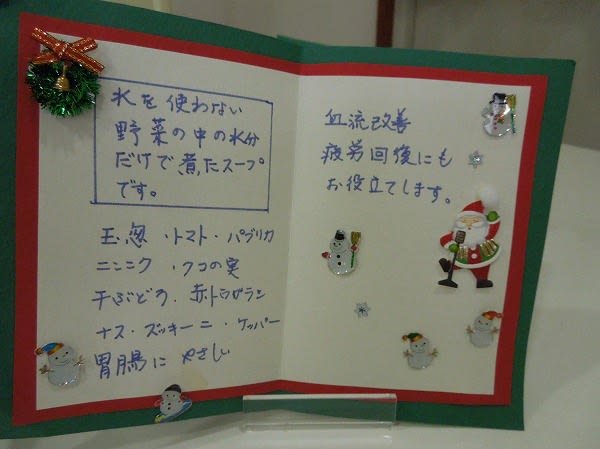 水を使わない
野菜の中の水分
だけで煮たスープ
です。
玉葱・トマト・パプリカ
ニンニク・クコの実
干ぶどう・赤トウガラシ
ナス・ズッキーニ・ケッパー
胃腸にやさしい
血流改善
疲労回復にも
お役立てします。